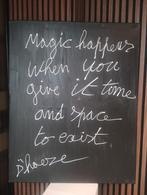 Magic happens
when you
give it time
and space
to exist